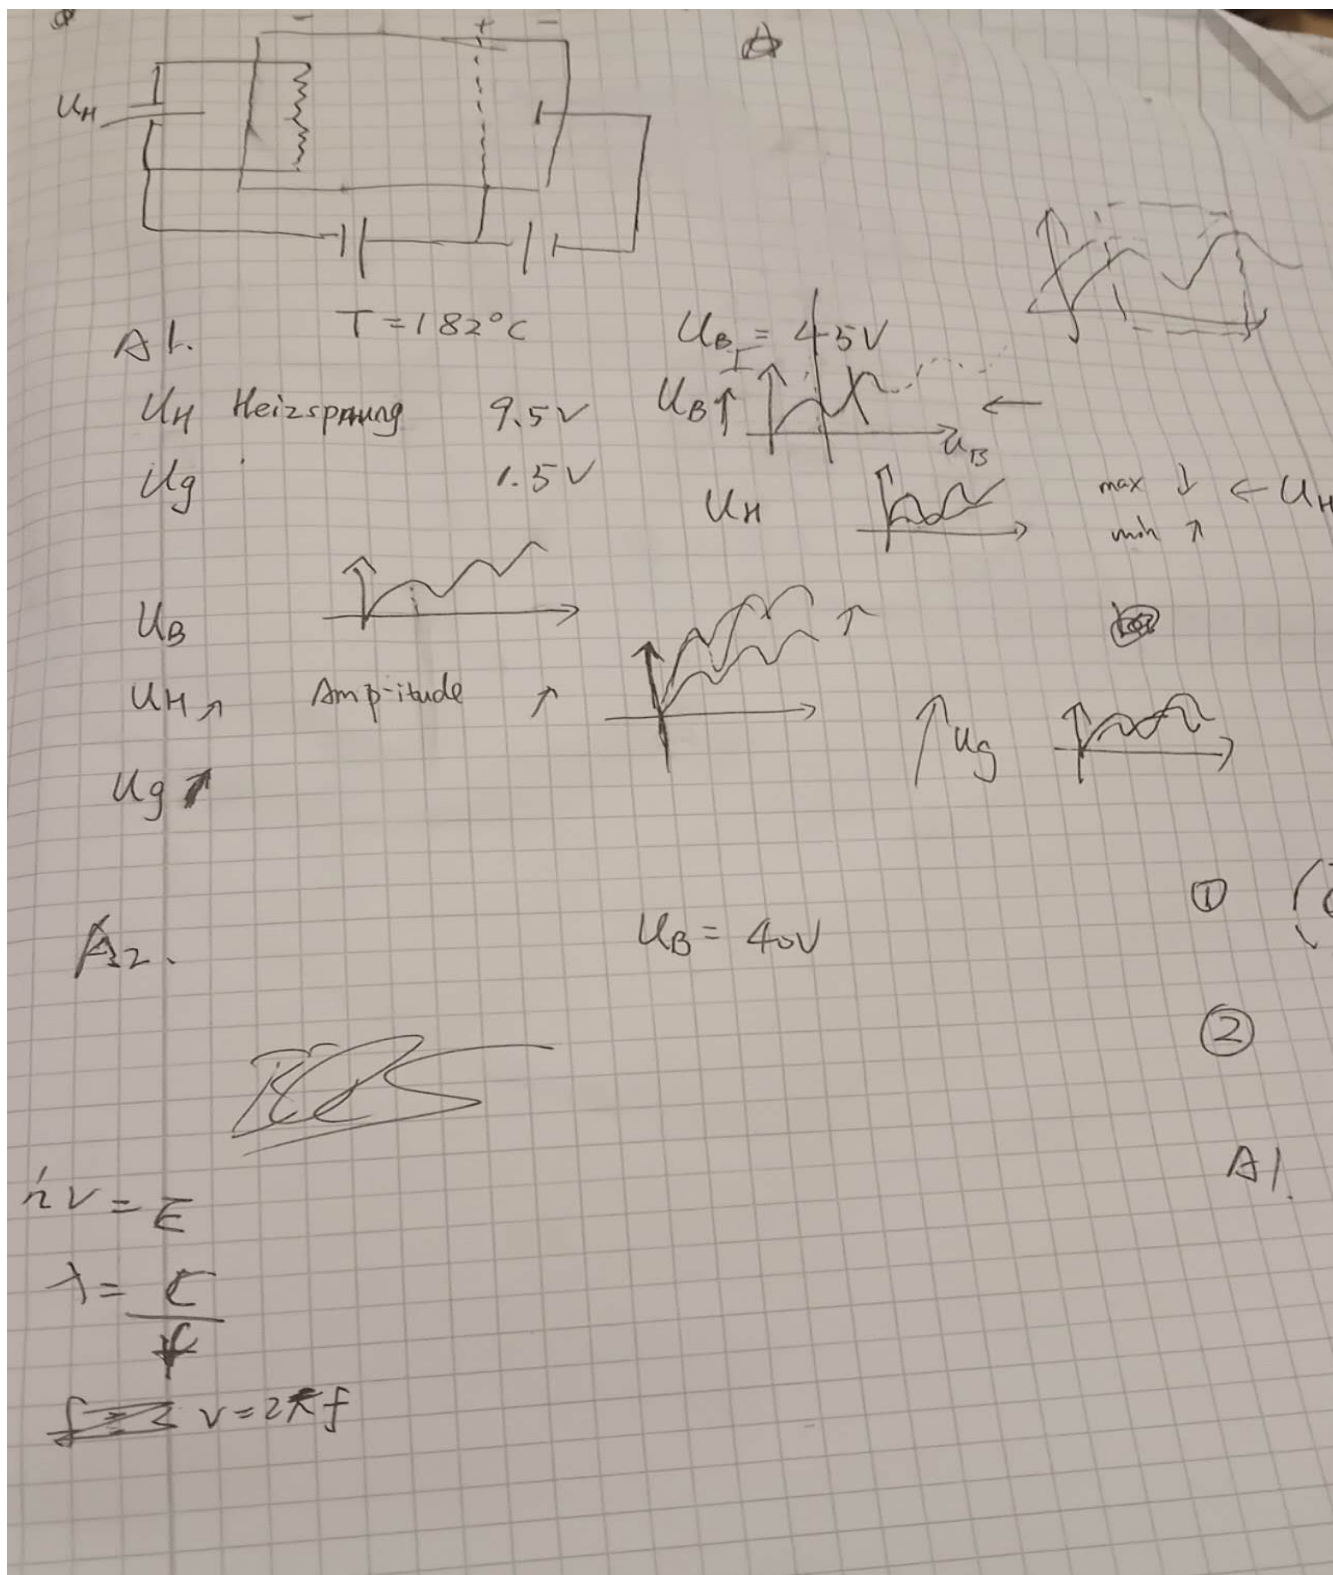 - + -
U_H
A1. T = 182°C U_B = 45V
U_H Heizspannung 9.5V U_B ↑ I U_B ←
Ug 1.5V
U_H max ↓ ← U_H
min ↗
U_B
U_H ↗ Amp-itude ↗ ↗
↑ Ug
Ug ↗
①
A2. U_B = 40V
②
A1.
ħν = E
λ = C / f
ν = 2πf